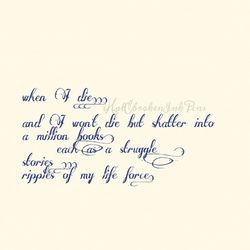 when I die
HalfbrokenInkPens
and I won't die but shatter into
a million books
each as a struggle
stories
ripples of my life force